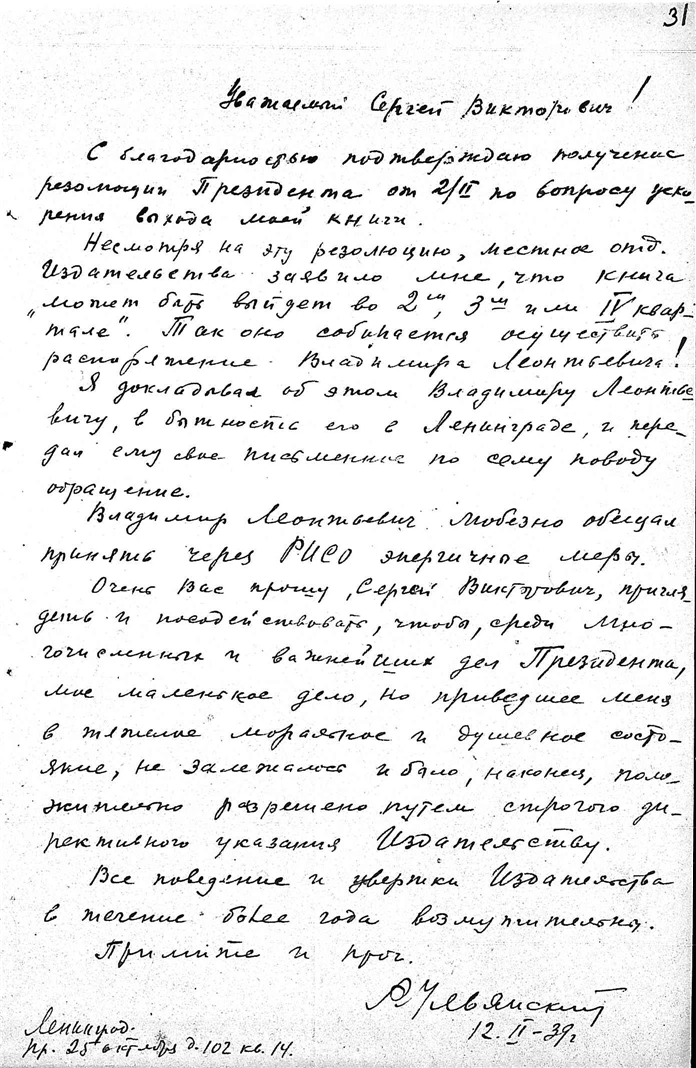 31
Уважаемый Сергей Викторович!
С благодарностью подтверждаю получение
резолюции Президента от 2/II по вопросу уско-
рения выхода моей книги.
Несмотря на эту резолюцию, местное отд.
Издательства заявило мне, что книга
„может быть выйдет во 2ᵐ, 3ᵐ или IV квар-
тале". Так оно собирается осуществить
распоряжение Владимира Леонтьевича!
Я докладывал об этом Владимиру Леонтье-
вичу, в бытность его в Ленинграде, и пере-
дал ему свое письменное по сему поводу
обращение.
Владимир Леонтьевич любезно обещал
принять через РИСО энергичные меры.
Очень Вас прошу, Сергей Викторович, пригля-
деть и посодействовать, чтобы, среди мно-
гочисленных и важнейших дел Президента,
мое маленькое дело, но приведшее меня
в тяжелое моральное и душевное состо-
яние, не залежалось и было, наконец, поло-
жительно разрешено путем строгого ди-
рективного указания Издательству.
Все поведение и увертки Издательства
в течение более года возмутительны.
Примите и проч.
А Ульянский
12. II–39г
Ленинград.
пр. 25 октября д. 102 кв. 14.